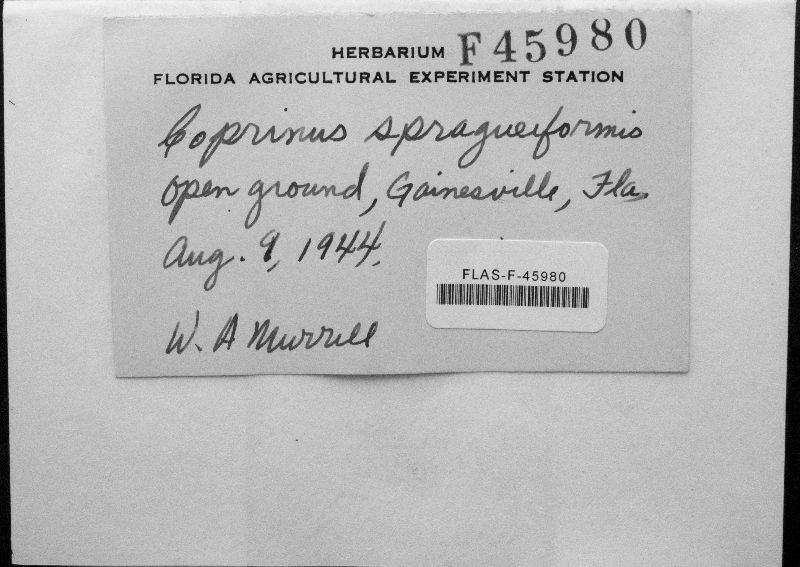 HERBARIUM F45980
FLORIDA AGRICULTURAL EXPERIMENT STATION
Coprinus spragueiformis
open ground, Gainesville, Fla,
Aug. 9, 1944,
FLAS-F-45980
W. A Murrill